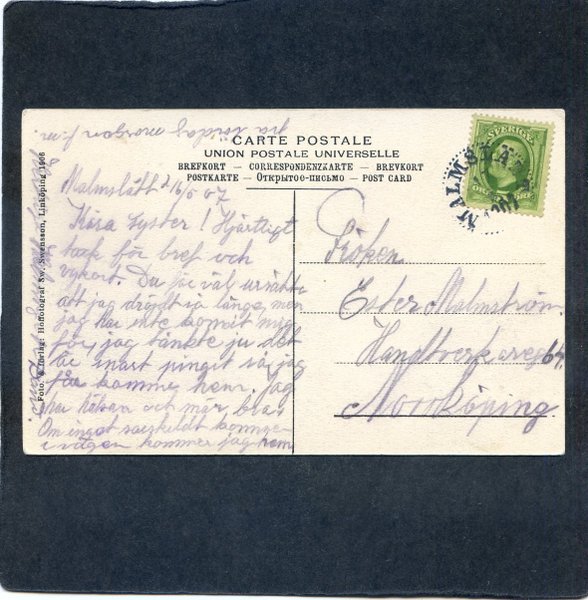 CARTE POSTALE
UNION POSTALE UNIVERSELLE
BREFKORT — CORRESPONDENZKARTE — BREVKORT
POSTKARTE — Открытое-письмо — POST CARD
Foto. & förlag: Hoffotograf Sw. Swensson, Linköping 1906
SVERIGE
MALMSLÄTT
Malmslätt d 16/5 07
Kära Syster! Hjärtligt
tack för bref och
vykort. Du får väl ursäkta
att jag dröjt så länge, men
jag har inte kommit mig
för, jag tänkte ju det
blir snart pingst så jag
får komme hem. Jag
har hälsan och mår bra.
Om inget särskildt kommer
i vägen kommer jag hem
på lördag morgon f.m.
Fröken
Ester Malmström
Handtverksareg 64.
Norrköping